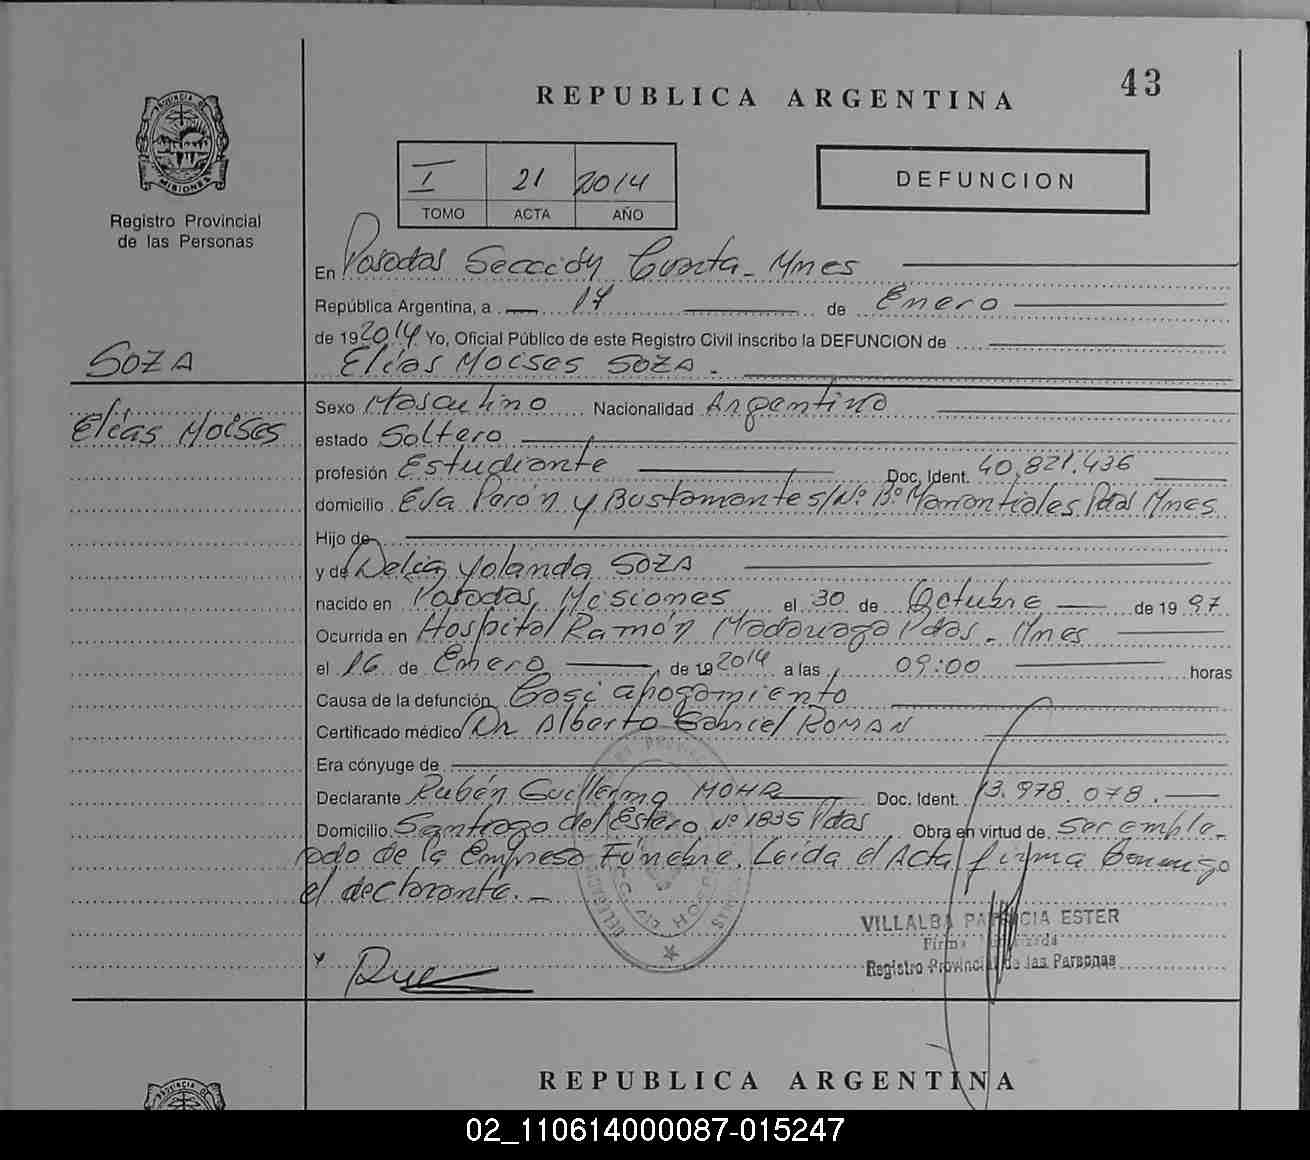 43
REPUBLICA ARGENTINA
PROVINCIA DE
MISIONES
Registro Provincial
de las Personas
I 21 2014
TOMO ACTA AÑO
DEFUNCION
En Posadas Sección Cuarta - Mnes
República Argentina, a 17 de Enero
de 192014 Yo, Oficial Público de este Registro Civil inscribo la DEFUNCION de
SOZA
Elías Moises SOZA.
Elías Moises
Sexo Masculino Nacionalidad Argentino
estado Soltero
profesión Estudiante Doc. Ident. 40.821.436
domicilio Eva Perón y Bustamante s/Nº Bº Manantiales Pdas Mnes
Hijo de
y de Delia Yolanda SOZA
nacido en Posadas, Misiones el 30 de Octubre de 19 97
Ocurrida en Hospital Ramón Madariaga Pdas - Mnes
el 16 de Enero, de 19 2014 a las 09:00 horas
Causa de la defunción Casi ahogamiento
Certificado médico Dr Alberto Gabriel ROMAN
Era cónyuge de
Declarante Rubén Guillermo Doc. Ident. 13.978.078.
Domicilio Santiago del Estero Nº 1835 Pdas Obra en virtud de Ser emple-
ado de la Empresa Fúnebre. Leída el Acta firma Conmigo
el declarante. -
VILLALBA PATRICIA ESTER
Registro Provincial de las Personas
REPUBLICA ARGENTINA
PROVINCIA DE
02_110614000087-015247